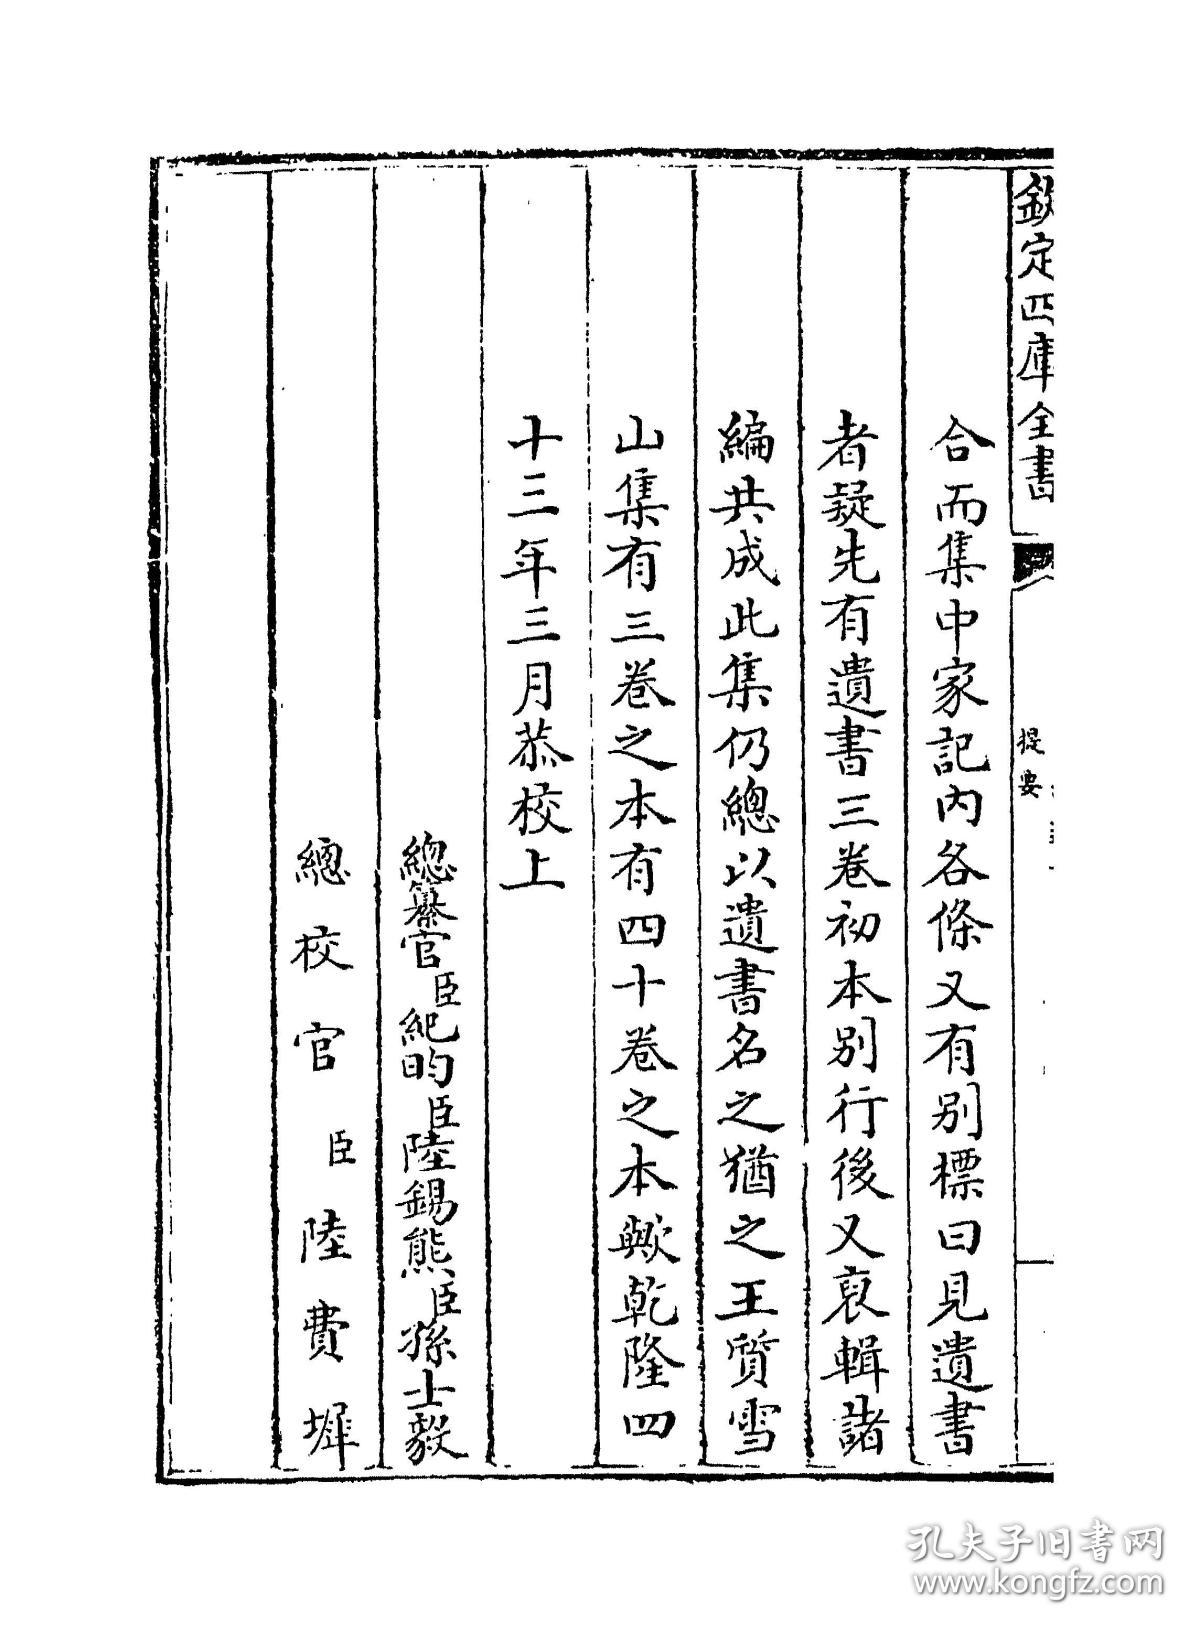 欽定四庫全書
提要
合而集中家記内各條又有别標曰見遺書
者疑先有遺書三卷初本别行後又裒輯諸
編共成此集仍總以遺書名之猶之王質雪
山集有三卷之本有四十卷之本歟乾隆四
十三年三月恭校上
總纂官臣紀昀臣陸錫熊臣孫士毅
總校官臣陸費墀
孔夫子旧书网
www.kongfz.com